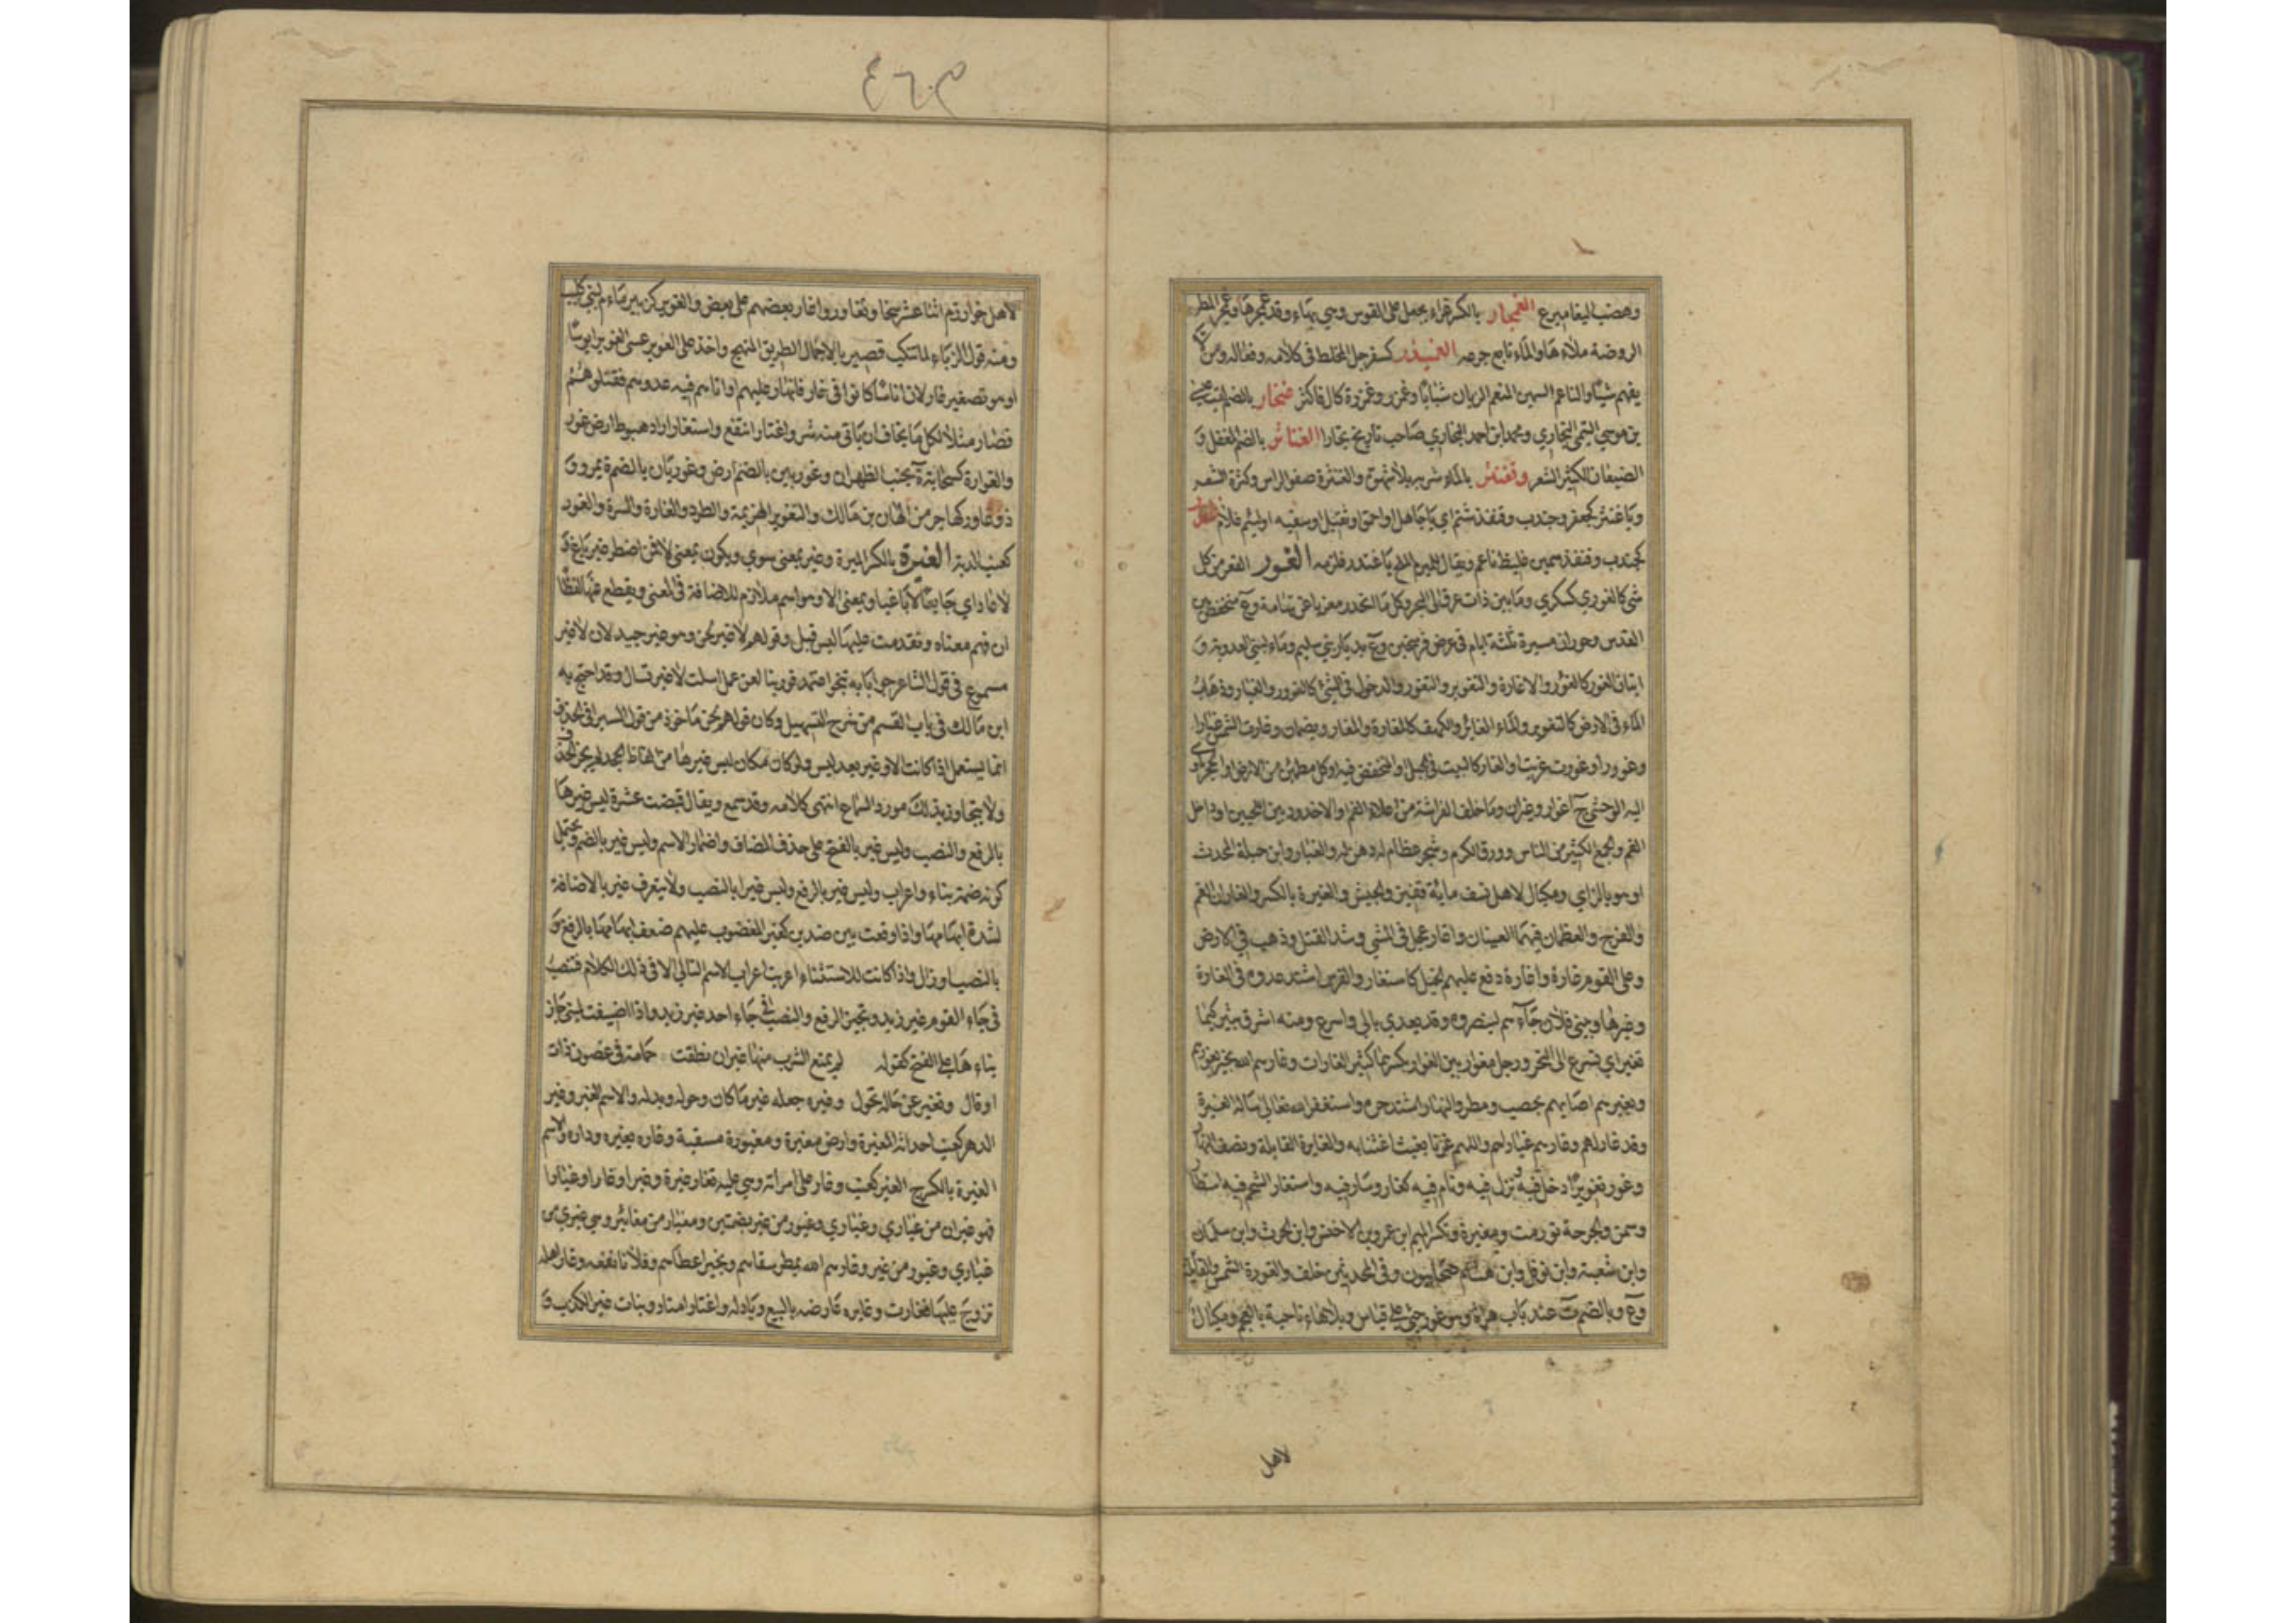 وهضب اليغاميرع الغمجار بالكسر غراء يجعل على القوس وهي بهاء وقد غمجرها وغمجر المطر
الروضة ملأها والماء تابع جرعه الغميذر كسفرجل المخلط في كلامه وفعاله ومن لا
يفهم شيئا والناعم السمين المتنعم الريان شبابا وغمزر وغمزرة كال فاكثر غنجار بالضم لقب عيسى
بن موسى التيمي البخاري ومحمد بن احمد البخاري صاحب تاريخ بخارا الغناثر بالضم المغفل و
الضبعان الكثير الشعر وتغنثر بالماء شربه بلا شهوة والغنثرة ضفو الراس وكثرة الشعر
ويا غنثر كجعفر وجندب وقنفذ شتم اي يا جاهل او احمق او ثقيل او سفيه او لئيم غلام غندر
كجندب وقنفذ سمين غليظ ناعم ويقال للمبرم الملح يا غندر فلزمه الغور القعر من كل
شئ كالغوري كسكرى وما بين ذات عرق الى البحر وكل ما انحدر مغربا عن تهامة وع منخفض بين
القدس وحوران مسيرة ثلثة ايام في عرض فرسخين وع بديار بني سليم وماء لبني العدوية و
اتيان الغور كالغؤور والاغارة والتغوير والتغور والدخول في الشئ كالغؤور والغيار وذهاب
الماء في الارض كالتغوير والماء الغائر والكهف كالمغارة والمغار ويضمان وغارت الشمس غيارا
وغؤورا وغورت غربت والغار كالبيت في الجبل او المنخفض فيه او كل مطمئن من الارض او الجحر ياوي
اليه الوحشي ج اغوار وغيران وما خلف الفراشة من اعلاء الفم او الاخدود بين اللحيين او داخل
الفم والجمع الكثير من الناس وورق الكرم وشجر عظام له دهن له والغبار وابن جبلة المحدث
او هو بالزاي ومكيال لاهل نسف مائة قفيز والجيش والغيرة بالكسر والغاران الفم
والفرج والعظمان فيهما العينان واغار عجل في المشي وشد الفتل وذهب في الارض
وعلى القوم غارة واغارة دفع عليهم الخيل كاستغار والفرس اشتد عدوه في الغارة
وغيرها وبنى فلان جآءهم لينصروه وقد يعدى بالى واسرع ومنه اشرق ثبير كيما
نغير اي نسرع الى النحر ورجل مغوار بين الغوار بكسرهما كثير الغارات وغارهم الله بخير يغورهم
ويغيرهم اصابهم بخصب ومطر والنهار اشتد حره واستغفر الله تعالى ساله الغيرة
وقد غار لهم وغارهم غيارا واللهم غرنا بغيث اغثنا به والغايرة القايلة ونصف النهار
وغور تغويرا دخل فيه ونزل فيه ونام فيه كغار وسار فيه واستغار الشحم فيه استطار
وسمن والجرحة تورمت ومغيرة وتكسر الميم ابن عمرو بن الاخنس وابن الحرث وابن سلمان
وابن شعبة وابن نوفل وابن هشام صحابيون وفي المحدثين خلف والغورة الشمس والقايلة
وع وبالضم ة عند باب هراة وهو غورجي على قياس وبلا هاء ناحية بالعجم ومكيال
لاهل
٤٦٠
لاهل خوارزم اثنا عشر سخا وتغاوروا اغار بعضهم على بعض والغوير كزبير ماء م لبني كلب
ومنه قول الزباء لما تنكب قصير بالاجمال الطريق المنهج واخذ على الغوير عسى الغوير ابوسا
او هو تصغير غار لان اناسا كانوا في غار فانهار عليهم او اتاهم فيه عدوهم فقتلوهم
فصار مثلا لكل ما يخاف ان ياتي منه شر واغتار انتفع واستغار اراد هبوط ارض غور
والغوارة كسحابة ة بجنب الظهران وغوريين بالضم ارض وغوريان بالضم ة بمرو و
ذو غاور كهاجر من الهان بن مالك والتغوير الهزيمة والطرد والغارة والسرة والغور
كعنب الدية الغيرة بالكسر الميرة وغير بمعنى سوى ويكون بمعنى لا فمن اضطر غير باغ و
لا عاد اي جايعا لا باغيا وبمعنى الا وهو اسم ملازم للاضافة في المعنى ويقطع عنها لفظا
ان فهم معناه وتقدمت عليها ليس قيل وقولهم لا غير لحن وهو غير جيد لان لا غير
مسموع في قول الشاعر جوابا به تنجو اعتمد فوربنا لعن عمل اسلفت لا غير تسال وقد احتج به
ابن مالك في باب القسم من شرح التسهيل وكان قولهم لحن ماخوذ من قول السيرافي الحذف
انما يستعمل اذا كانت الا وغير بعد ليس ولو كان مكان ليس غيرها من الفاظ الجحد لم يجز الحذف
ولا يتجاوز بذلك مورد السماع انتهى كلامه وقد سمع ويقال قبضت عشرة ليس غيرها
بالرفع والنصب وليس غير بالفتح على حذف المضاف واضمار الاسم وليس غير بالضم ويحتمل
كونه ضمة بناء واعراب وليس غير بالرفع وليس غيرا بالنصب ولا يتعرف غير بالاضافة
لشدة ابهامها واذا وقعت بين ضدين كغير المغضوب عليهم ضعف ابهامها بالرفع و
بالنصب او زال واذا كانت للاستثناء اعربت اعراب الاسم التالي الا في ذلك الكلام فتنصب
في جاء القوم غير زيد وتجيز الرفع والنصب في ما جاء احد غير زيد واذا اضيفت لمبني جاز
بناءها على الفتح كقوله لم يمنع الشرب منها غير ان نطقت حمامة في غصون ذات
اوقال وتغير عن حاله تحول وغيره جعله غير ما كان وحوله وبدله والاسم الغير وغير
الدهر كعنب احداثه المغيرة وارض مغيرة ومغيورة مسقية وغاره يغيره وداه والاسم
الغيرة بالكسر ج الغير كعنب وغار على امراته وهي عليه تغار غيرة وغيرا وغارا وغيارا
فهو غيران من غيارى وغيارى وغيور من غير بضمتين ومغيار من مغائير وهي غيرى من
غيارى وغيور من غير وغارهم الله بمطر سقاهم وبخير اعطاهم وفلانا نفعه وغار اهله
تزوج عليها فغارت وغايره عارضه بالبيع وبادله واغتار امتار وبنات غير الكذب و